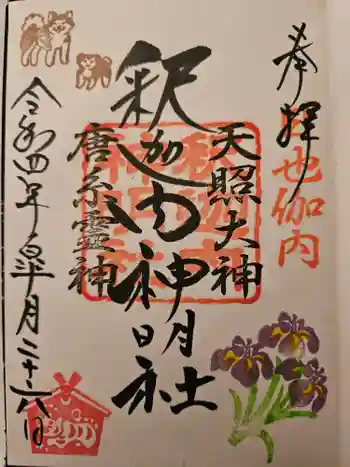 奉拝
也伽内
天照大神
釈迦内神明社
唐糸靈神
令和四年皐月二十六日